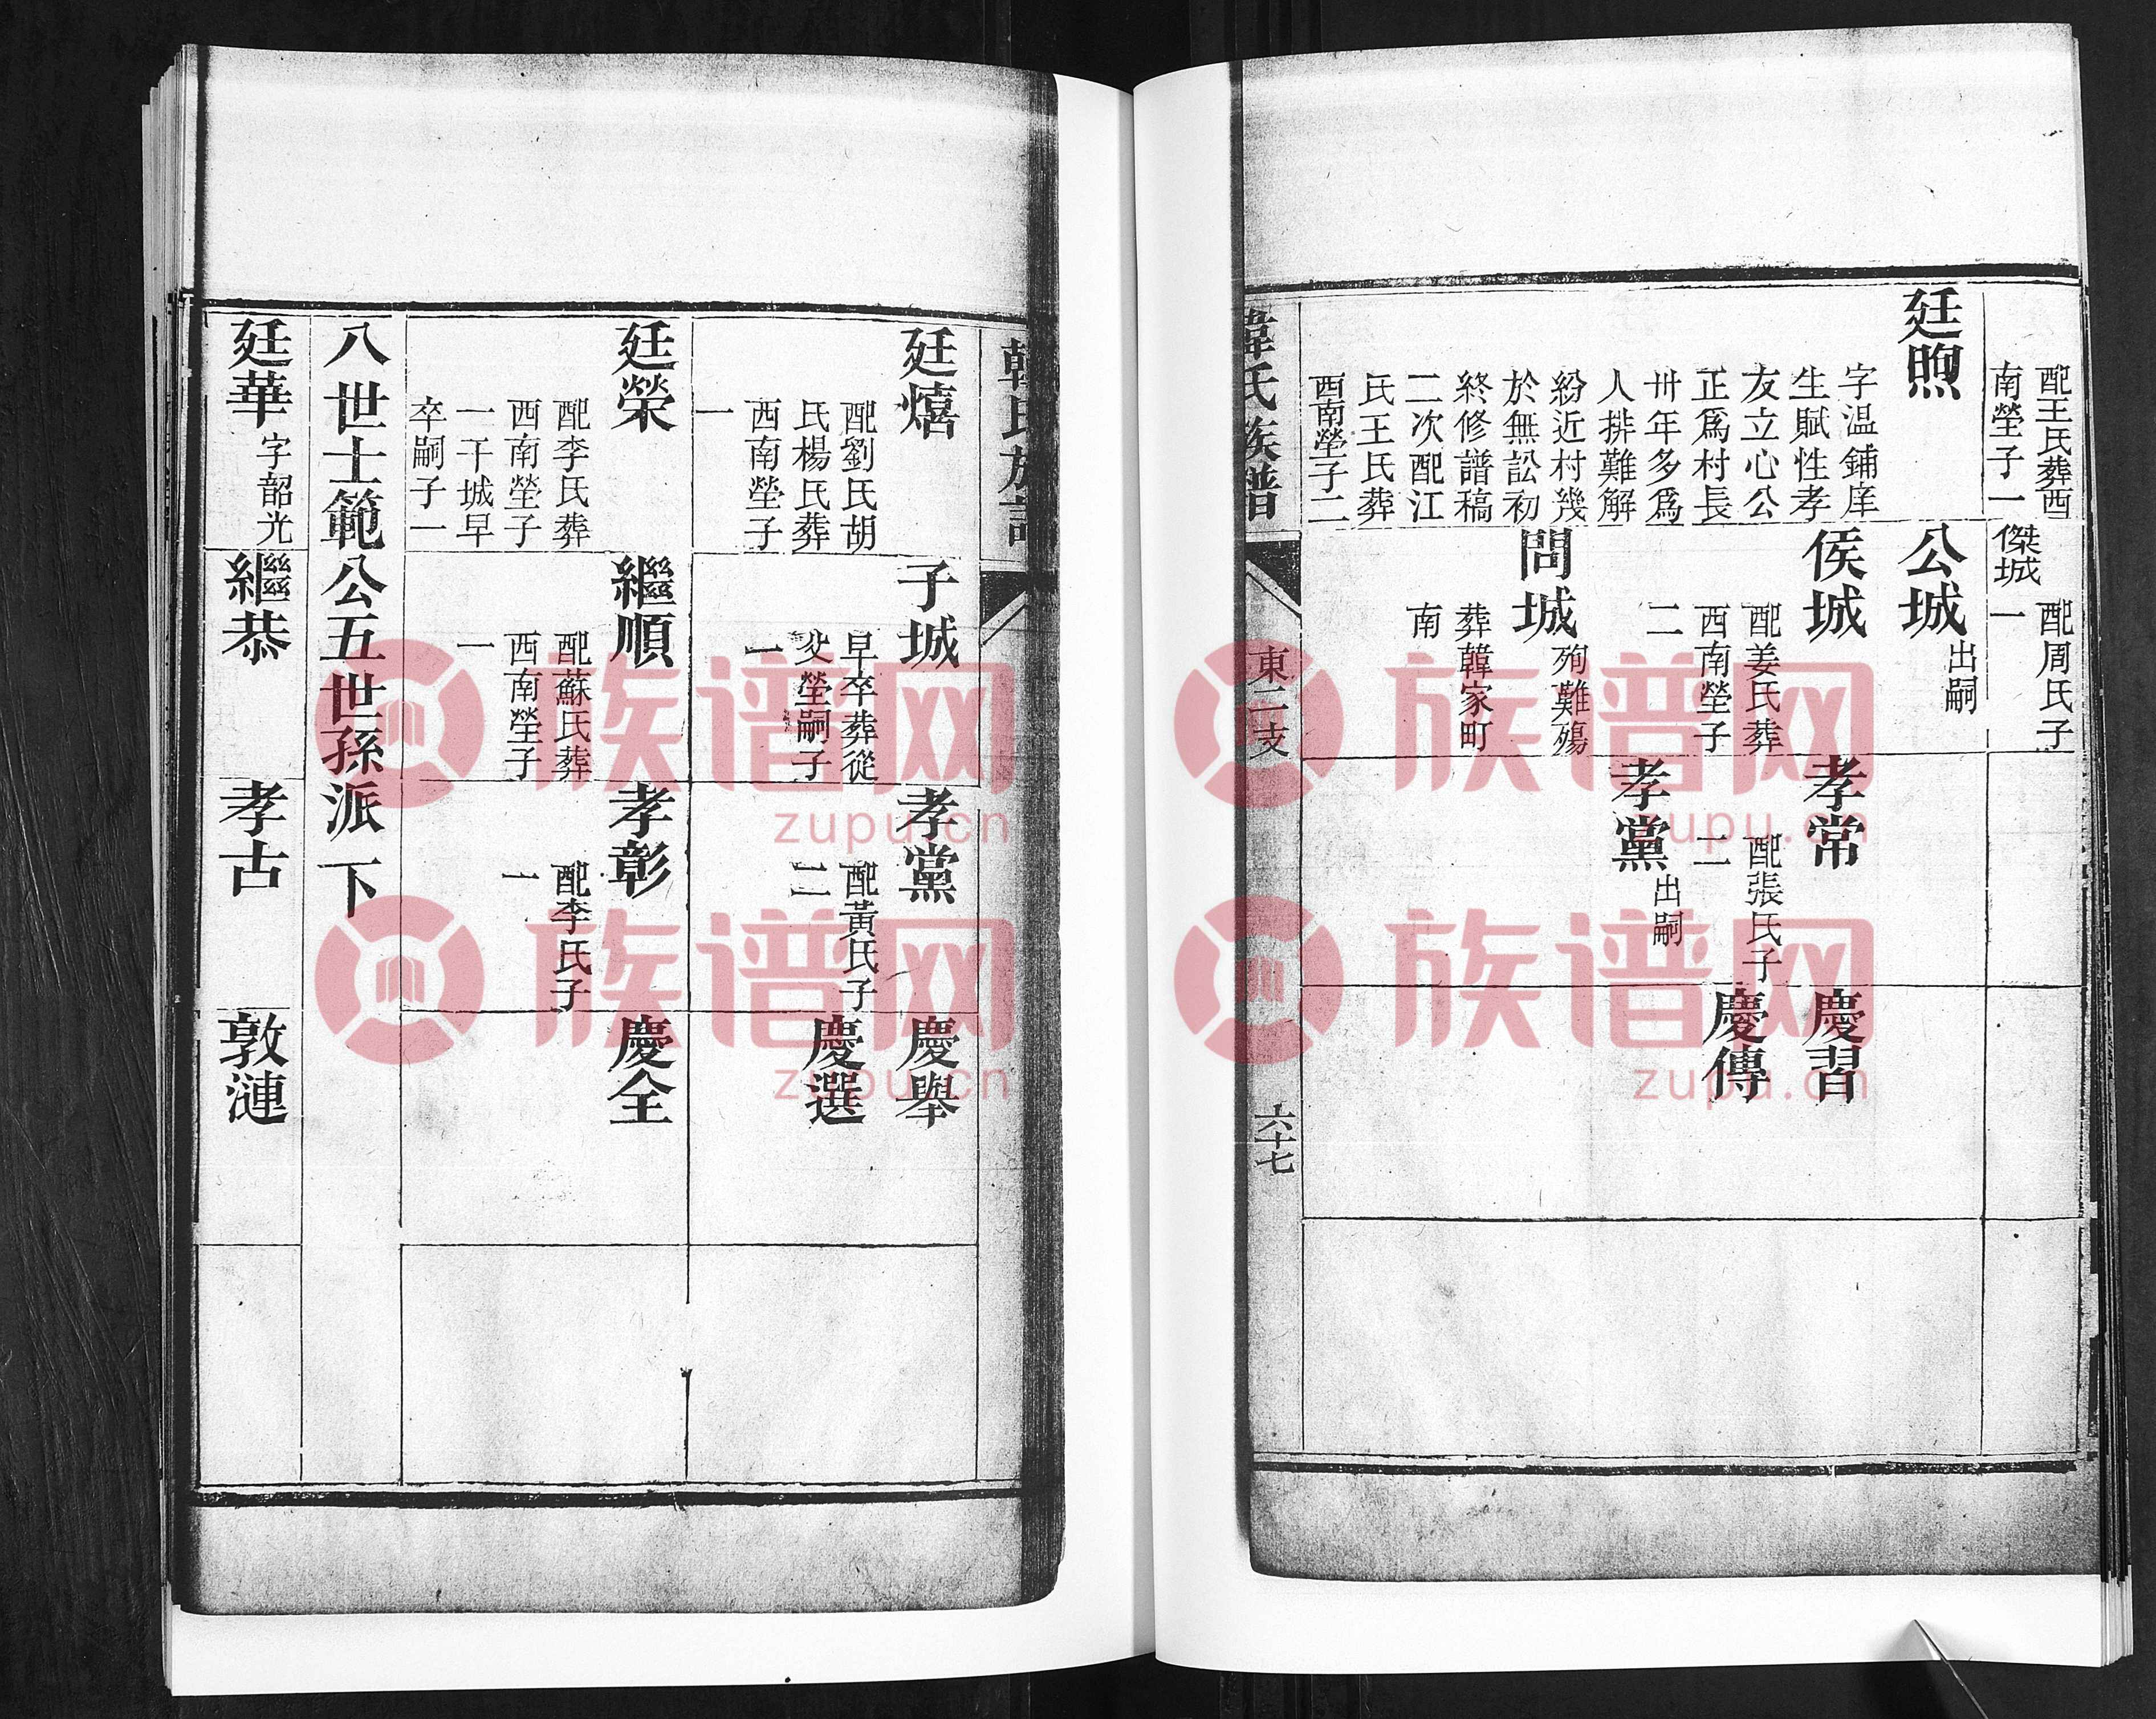 配王氏葬西
南塋子一
傑城
配周氏子
一
廷煦
字温鋪庠
生賦性孝
友立心公
正爲村長
卅年多爲
人排難解
紛近村幾
於無訟初
終修譜稿
二次配江
氏王氏葬
西南塋子二
公城
出嗣
侯城
配姜氏葬
西南塋子
二
問城
殉難殤
葬韓家町
南
孝常
配張氏子
二
孝黨
出嗣
慶習
慶傳
韓氏族譜
東二支
六十七
韓氏族譜
廷熺
配劉氏胡
氏楊氏葬
西南塋子
一
子城
早卒葬從
父塋嗣子
一
孝黨
配黃氏子
二
慶舉
慶選
廷榮
配李氏葬
西南塋子
一干城早
卒嗣子一
繼順
配蘇氏葬
西南塋子
一
孝彰
配李氏子
一
慶全
八世士範公五世孫派下
廷華
字韶光
繼恭
孝古
敦漣
族谱网
zupu.cn
族谱网
zupu.cn
族谱网
zupu.cn
族谱网
zupu.cn